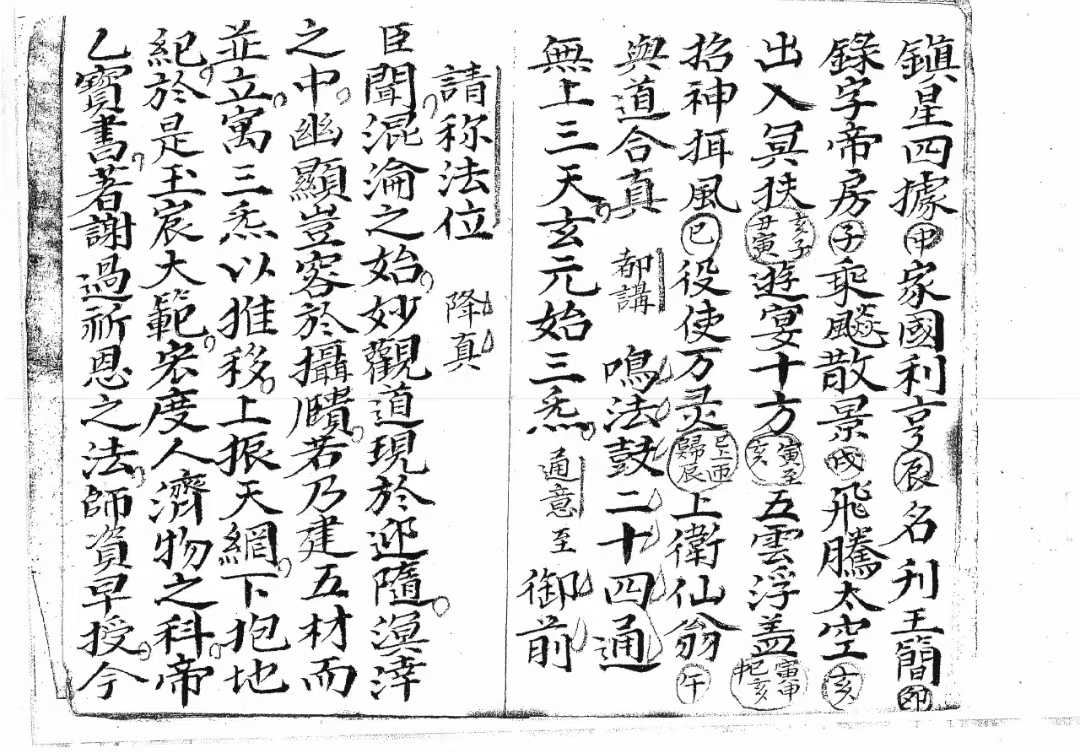 鎮星四據申家國利亨辰名刊玉簡卯
錄字帝房子乘飈散景戌飛騰太空亥
出入冥扶亥子丑寅遊宴十方寅至亥五雲浮盖寅申巳亥
招神揖風巳役使万灵歸辰上衛仙翁午
與道合真 都講 鳴法鼓二十四通
無上三天玄元始三炁 通意至 御前
請称法位 降真
臣聞混淪之始妙觀道現於迎隨溟涬
之中幽顯豈容於攝賾若乃建五材而
並立寓三炁以推移上振天網下抱地
紀於是玉宸大範宏度人濟物之科帝
乙寶書著謝過祈恩之法師資早授今